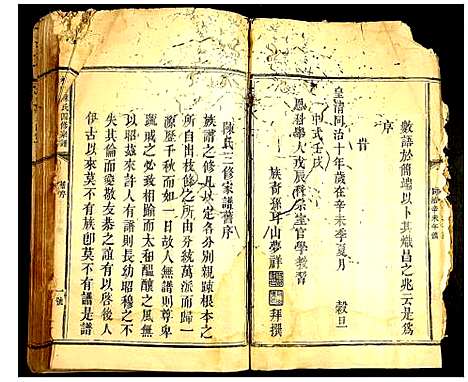 數語於簡端以卜其熾昌之兆云是為
序
旹
皇清同治十年歲在辛未季夏月 穀旦
中式壬戌
恩科舉人戊辰科宗室官學教習
族裔孫 山夢祥 拜撰
陳氏三修家譜舊序
族譜之修凡以定各分別親疎根本之
所自出枝分之所由分統萬派而歸一
源歷千秋而如一日故人無譜則尊卑
親戚之必致相踰而太和醞釀之風無
以昭茲來許人有譜則長幼昭穆不
失其倫而愛敬孝友之誼有以維繫於
伊古以來莫不有族卽莫不有譜是譜
陳氏四修家譜
舊序
一號
同治辛未年舊